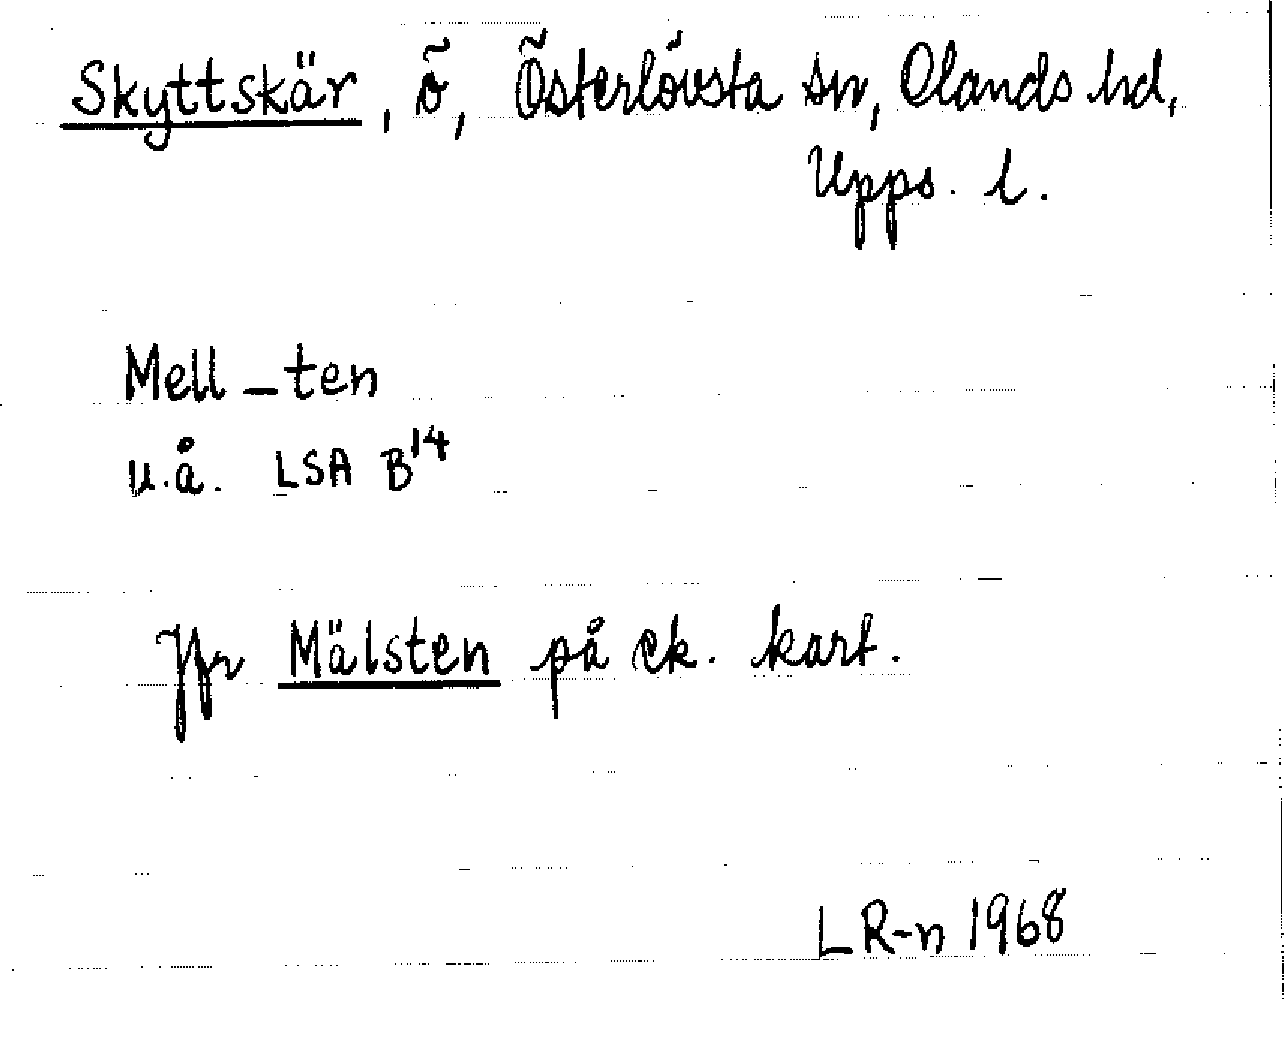 Skyttskär, ö, Österlövsta sn, Olands hd,
Upps. l.
Mell – ten
u.å. LSA B¹⁴
Jfr Mälsten på ek. kart.
LR-n 1968